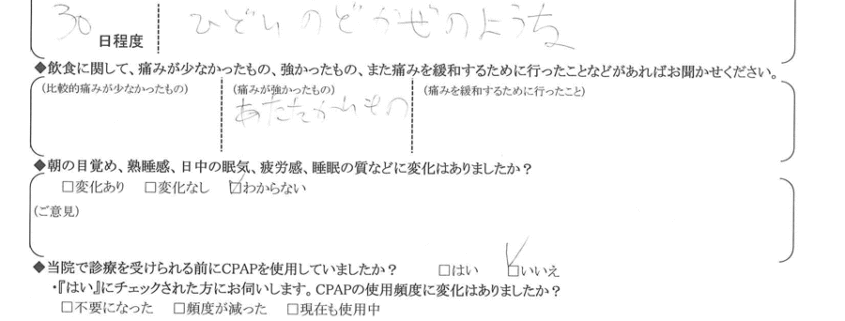 30 日程度 ひどいのどかぜのような
◆飲食に関して、痛みが少なかったもの、強かったもの、また痛みを緩和するために行ったことなどがあればお聞かせください。
(比較的痛みが少なかったもの) (痛みが強かったもの) (痛みを緩和するために行ったこと)
あたたかいもの
◆朝の目覚め、熟睡感、日中の眠気、疲労感、睡眠の質などに変化はありましたか？
□変化あり □変化なし ☑わからない
(ご意見)
◆当院で診療を受けられる前にCPAPを使用していましたか？ □はい ☑いいえ
・『はい』にチェックされた方にお伺いします。CPAPの使用頻度に変化はありましたか？
□不要になった □頻度が減った □現在も使用中